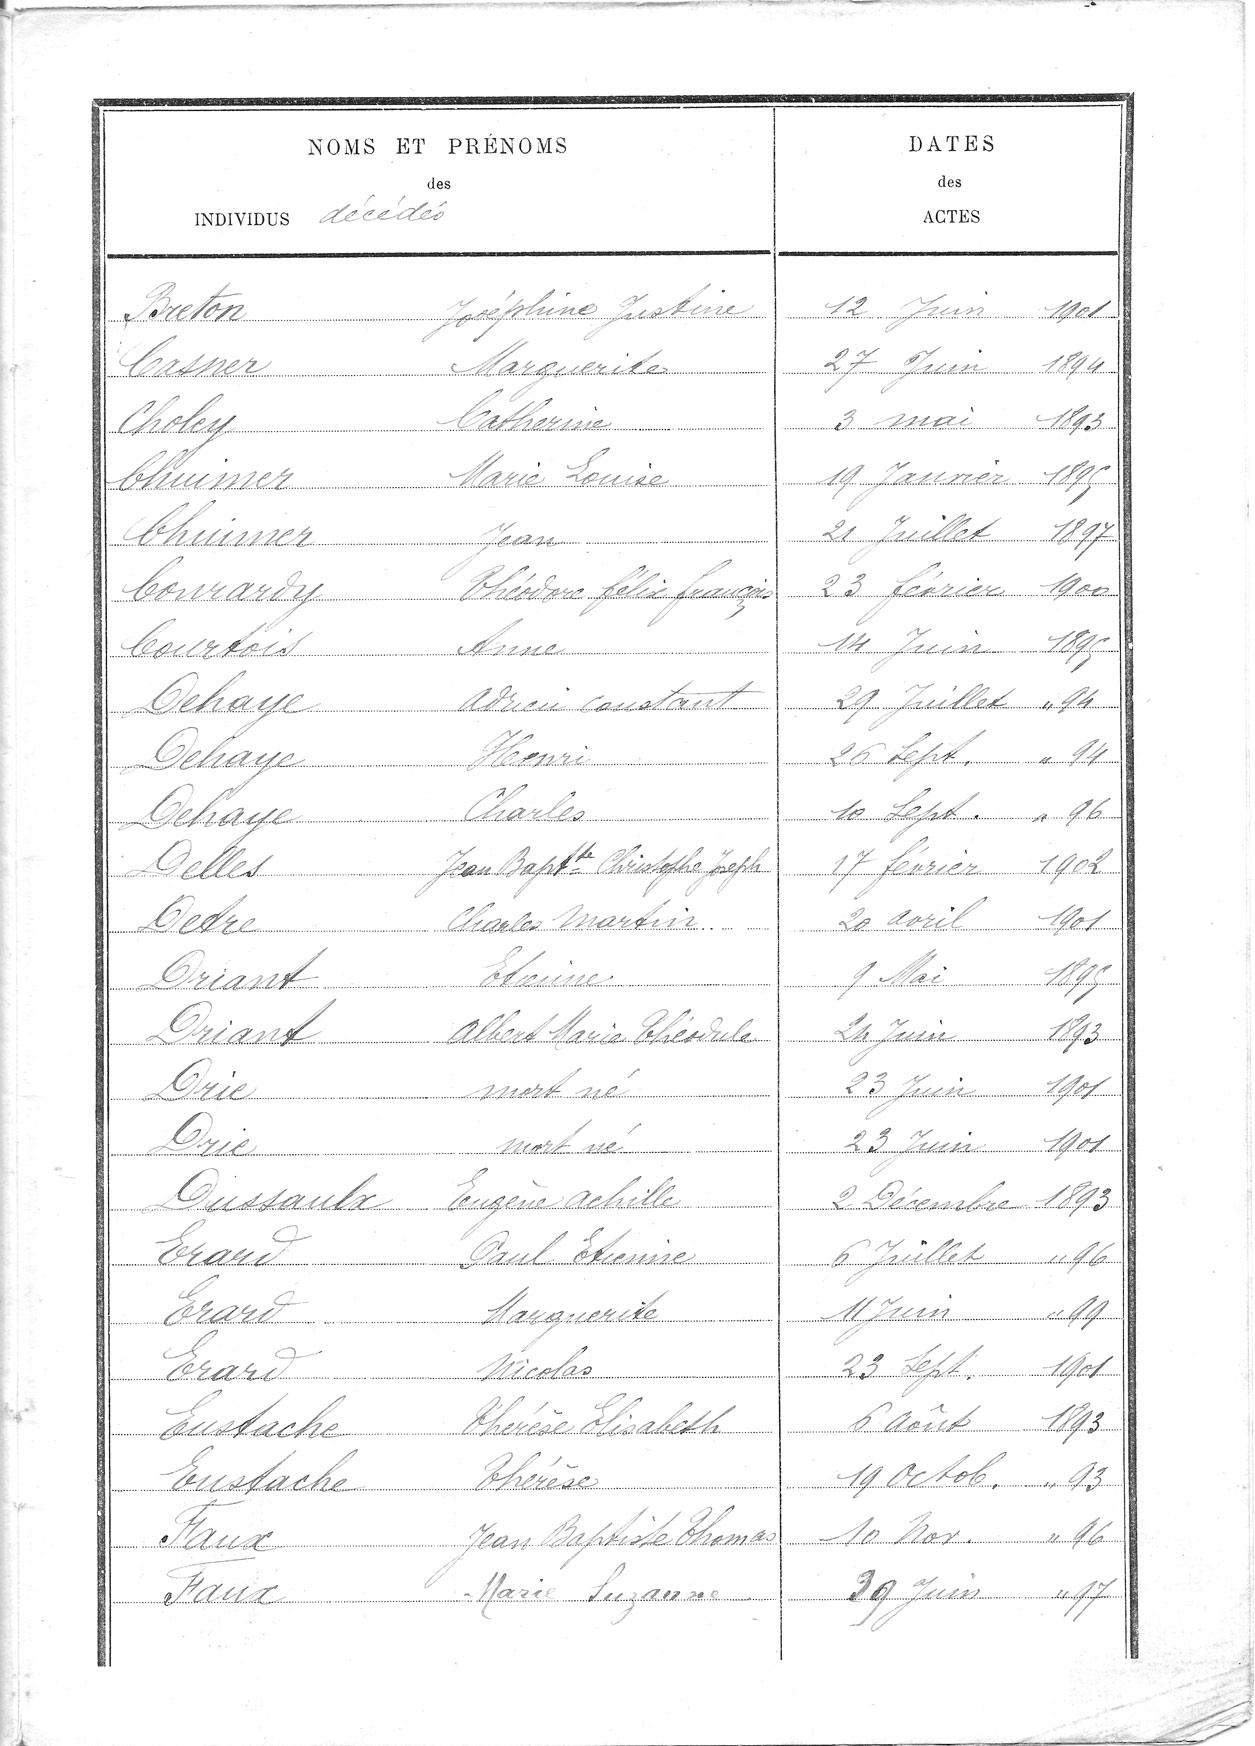 NOMS ET PRÉNOMS
des
INDIVIDUS décédés
DATES
des
ACTES
Breton Joséphine Justine 12 Juin 1901
Casner Marguerite 27 Juin 1894
Choley Catherine 3 mai 1893
Chuimer Marie Louise 19 Janvier 1895
Chuimer Jean 21 Juillet 1897
Conrardy Théodore félix françois 23 février 1900
Courtois Anne 14 Juin 1895
Dehaye Adrien constant 29 Juillet " 94
Dehaye Henri 26 Sept. " 94
Dehaye Charles 10 Sept. " 96
Delles Jean Bapt^te Christophe Joseph 17 février 1902
Detre Charles Martin 20 avril 1901
Driant Etienne 9 Mai 1895
Driant Albert Marie Théodule 24 Juin 1893
Drie mort né 23 Juin 1901
Drie mort né 23 Juin 1901
Dussaulx Eugène Achille 2 Décembre 1893
Erard Paul Etienne 6 Juillet " 96
Erard Marguerite 11 Juin " 99
Erard Nicolas 23 Sept. 1901
Eustache Thérèse Elisabeth 6 Août 1893
Eustache Thérèse 19 Octob. " 93
Faux Jean Baptiste Thomas 10 Nov. " 96
Faux Marie Suzanne Juin " 97